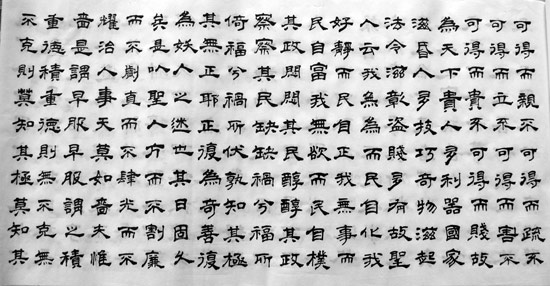 可得而親不可得而疏不
可得而立不可得而害不
可得而貴不可得而賤故
為天下貴人多利器國家
滋昏人多技巧奇物滋起
法令滋彰盜賊多有故聖
人云我無為而民自化我
好靜而民自正我無事而
民自富我無欲而民自樸
其政悶悶其民醇醇其政
察察其民缺缺禍兮福所
倚福兮禍所伏孰知其極
其無正耶正復為奇善復
為妖人之迷也其日固久
矣是以聖人方而不割廉
而不劌直而不肆光而不
耀治人事天莫如嗇夫惟
嗇是謂早服早服謂之積
重德積重德則無不克無
不克則莫知其極莫知其